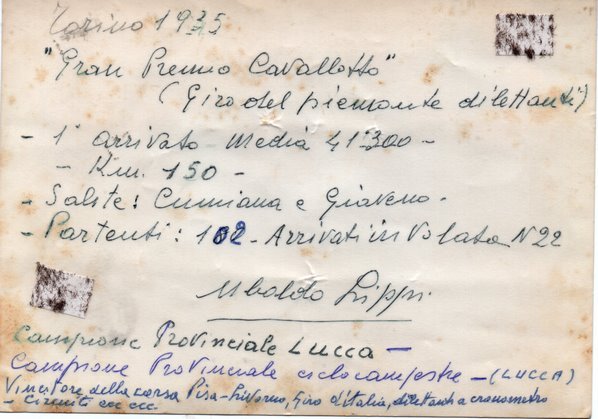 Torino 1935
"Gran Premio Cavallotto"
(Giro del piemonte dilettanti)
- 1° arrivato - Media 41°300 -
- Km. 150 -
- Salite: Cumiana e Giaveno -
- Partenti: 102 - Arrivati in Volata N 22
Ubaldo Lippi
Campione Provinciale LUCCA -
Campione Provinciale ciclocampestre - (LUCCA)
Vincitore della corsa Pisa-Livorno, Giro d'Italia, dilettanti a cronometro
- Circuiti ecc ecc.